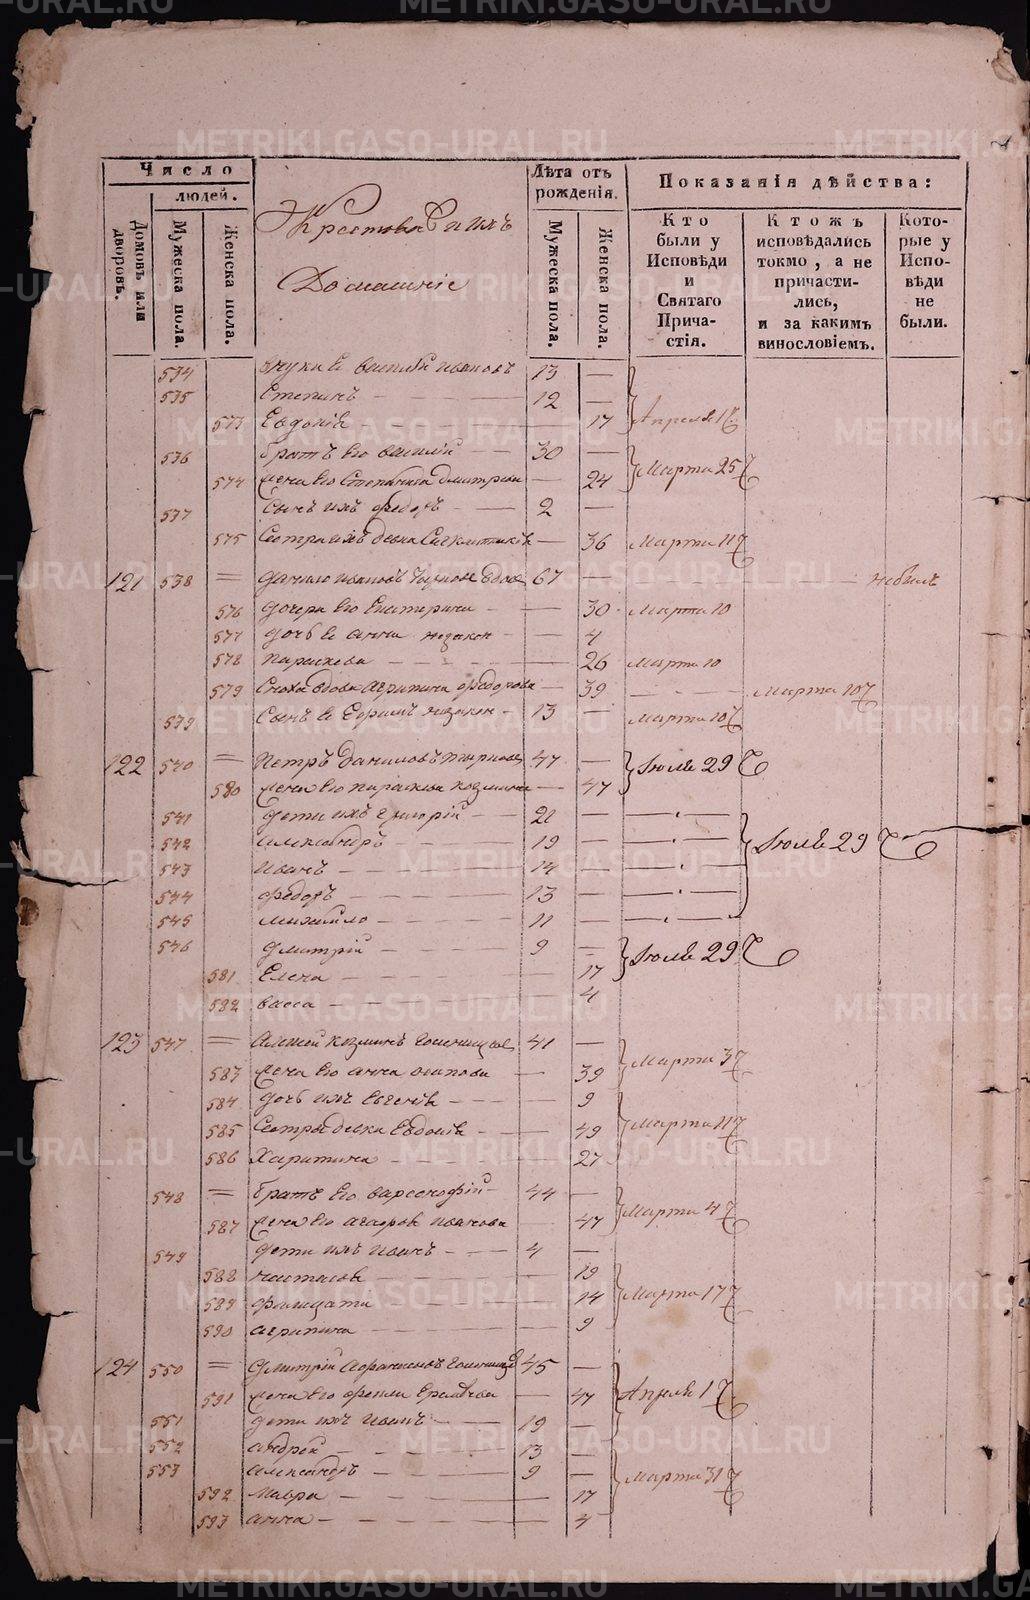 Число людей.
Домовъ или дворовъ.
Мужеска пола.
Женска пола.
Крестовы и ихъ
Домашніе
Лѣта отъ рожденія.
Мужеска пола.
Женска пола.
Показанія дѣйства:
Кто были у Исповѣди и Святаго Причастія.
Ктожъ исповѣдались токмо, а не причастились, и за какимъ винословіемъ.
Которые у Исповѣди не были.
534 внуки ее василій ивановъ 13 —
535 Степанъ — 12 —
573 Евдокія — 17 Апреля 1
536 братъ его василій — 30 —
574 жена его Степанида дмитріева — 24 Марта 25
537 сынъ ихъ федоръ — 2 —
575 Сестра ихъ девка — 36 Марта 11
121 538 = данило ивановъ вдовъ 67 — небылъ
576 дочери его Екатерина — 30 Марта 10
577 дочь ее анна незакон — 4
578 параскева — 26 Марта 10
579 Сноха вдова Агрипина федорова — 39 — Марта 10
539 Сынъ ее Ефремъ незакон — 13 — Марта 10
122 540 = Петръ даниловъ 47 —
580 жена его параскева козмина — 47 Іюля 29
541 дети ихъ григорій — 21 —
542 александръ — 19 —
543 иванъ — 14 — Іюля 29
544 федоръ — 13 —
545 михайло — 11 —
546 дмитрій — 9 —
581 Елена — 17 Іюля 29
582 васса — 4
123 547 = козминъ 41 —
583 жена его анна осипова — 39 Марта 3
584 дочь ихъ евгенія — 9
585 Сестра девка Евдокія — 49 Марта 11
586 Харитина — 27
548 = братъ его варсонофій — 44 —
587 жена его иванова — 47 Марта 4
549 дети ихъ иванъ — 4 —
588 настасья — 19
589 фелицата — 14 Марта 17
590 агрипина — 9
124 550 = дмитрій 45 —
591 жена его — 47 Апреля 1
551 дети ихъ иванъ — 19 —
552 андрей — 13 —
553 александръ — 9 — Марта 31
592 мавра — 17
593 анна — 4
METRIKI.GASO-URAL.RU